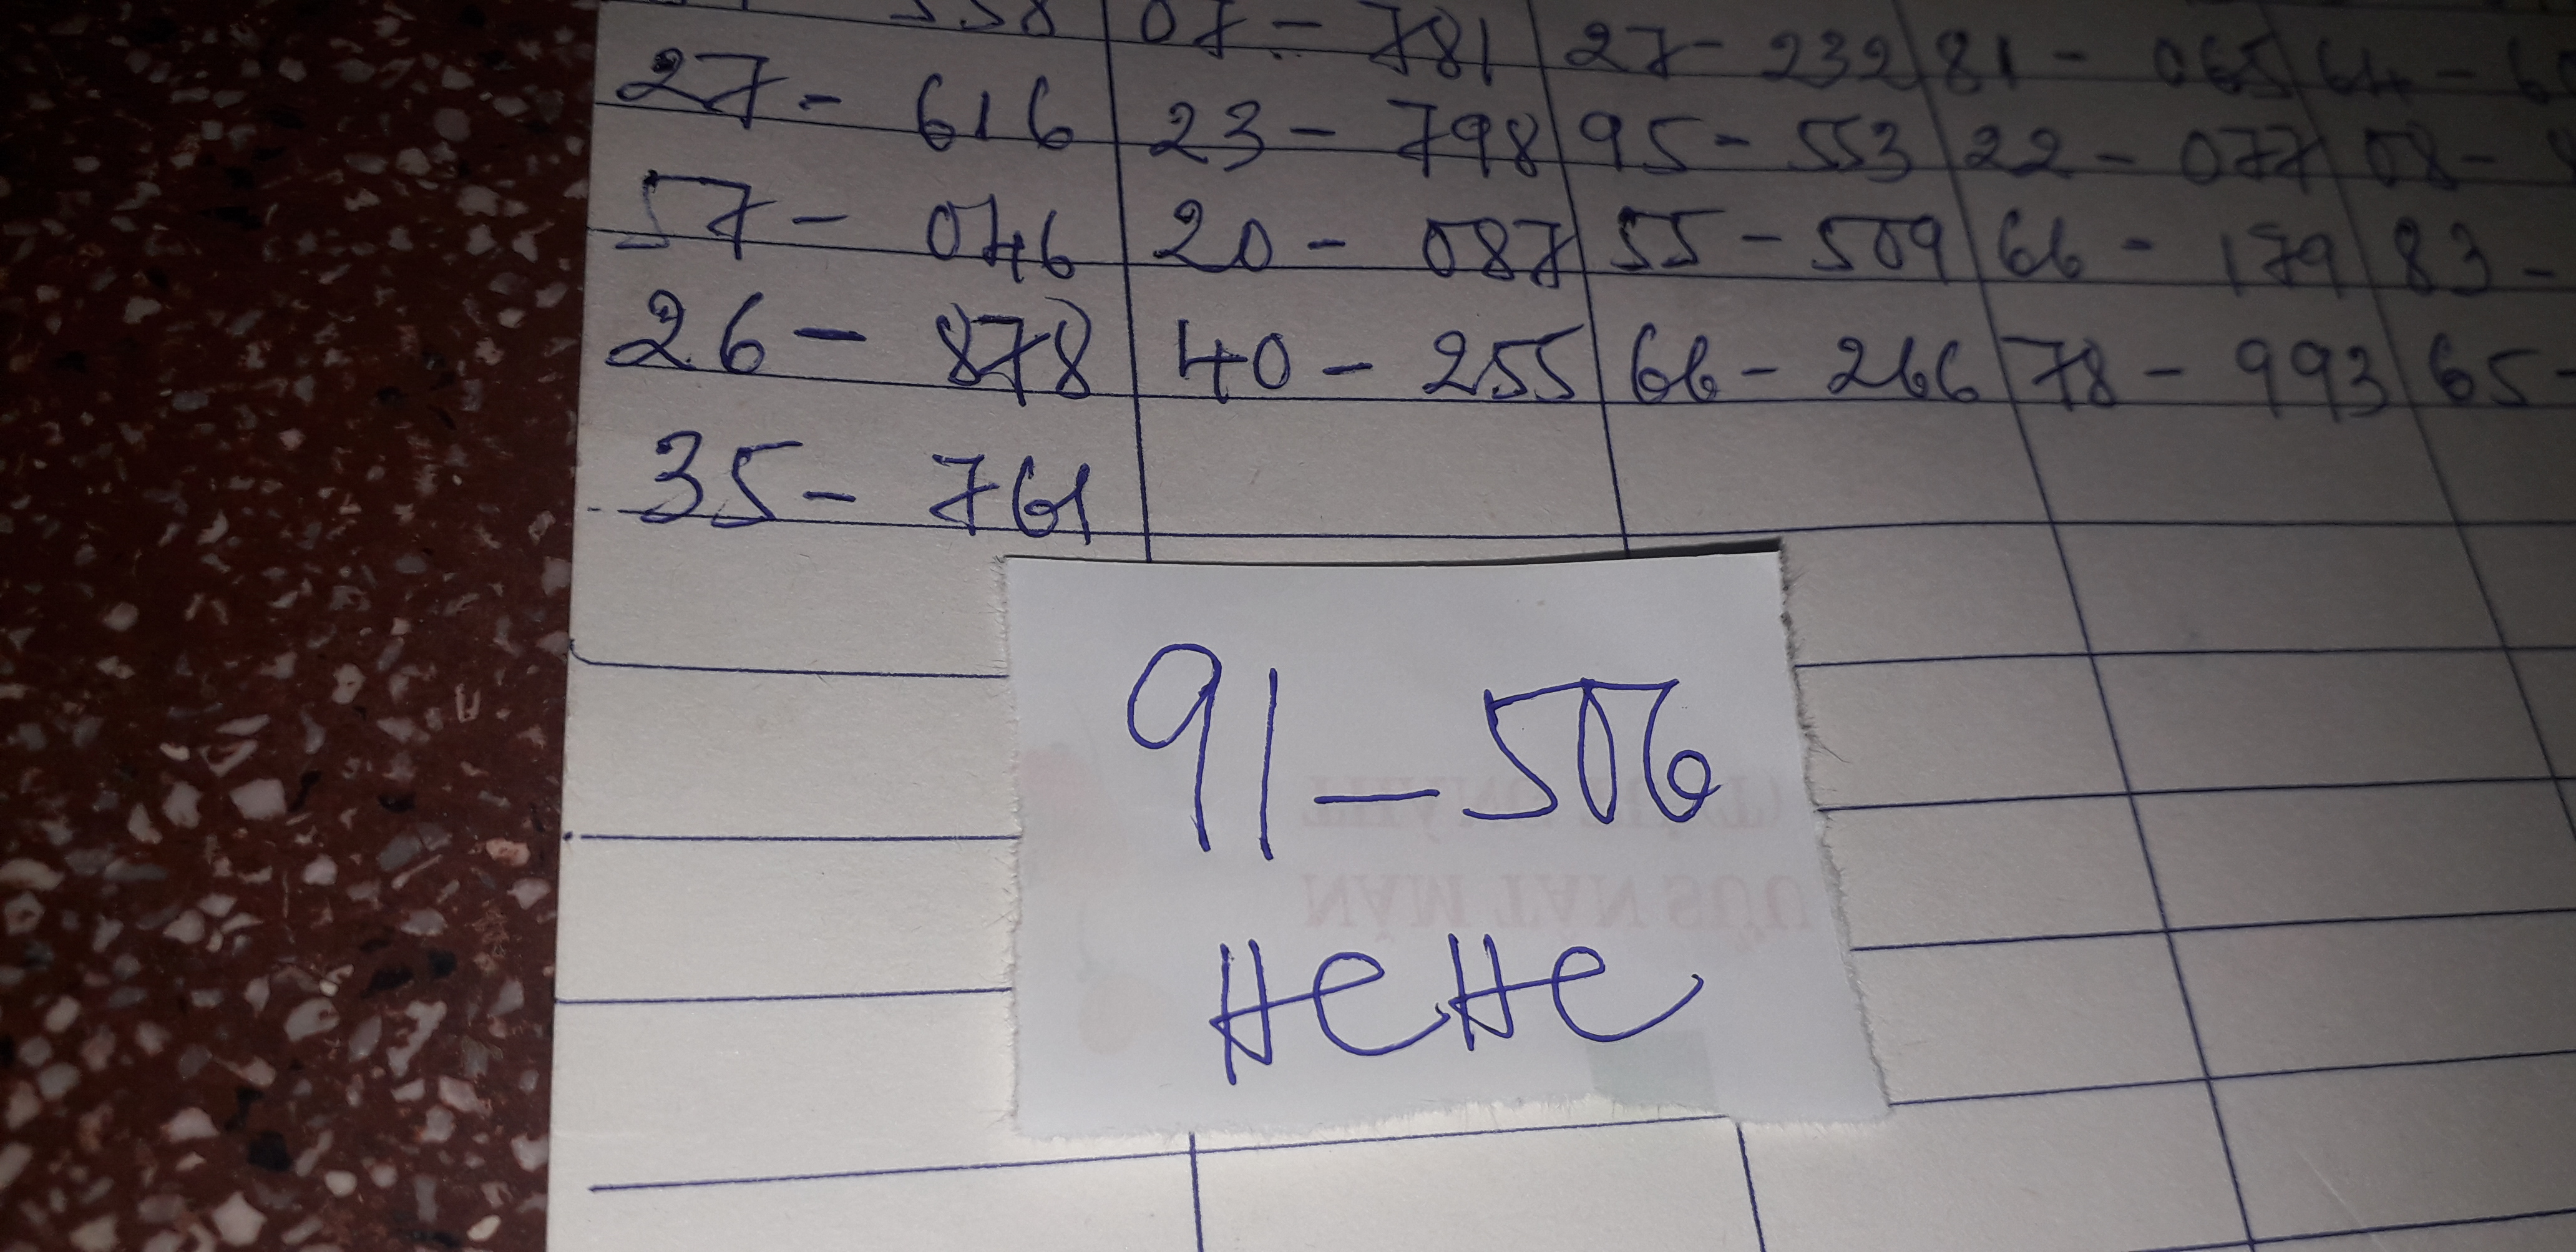 558 07 - 781 27 - 232 81 - 065 64 -
27 - 616 23 - 798 95 - 553 22 - 077 08 -
57 - 046 20 - 087 55 - 509 66 - 179 83 -
26 - 878 40 - 255 66 - 266 78 - 993 65 -
35 - 761
91 - 506
HeHe
NĂM TÂN SỬU